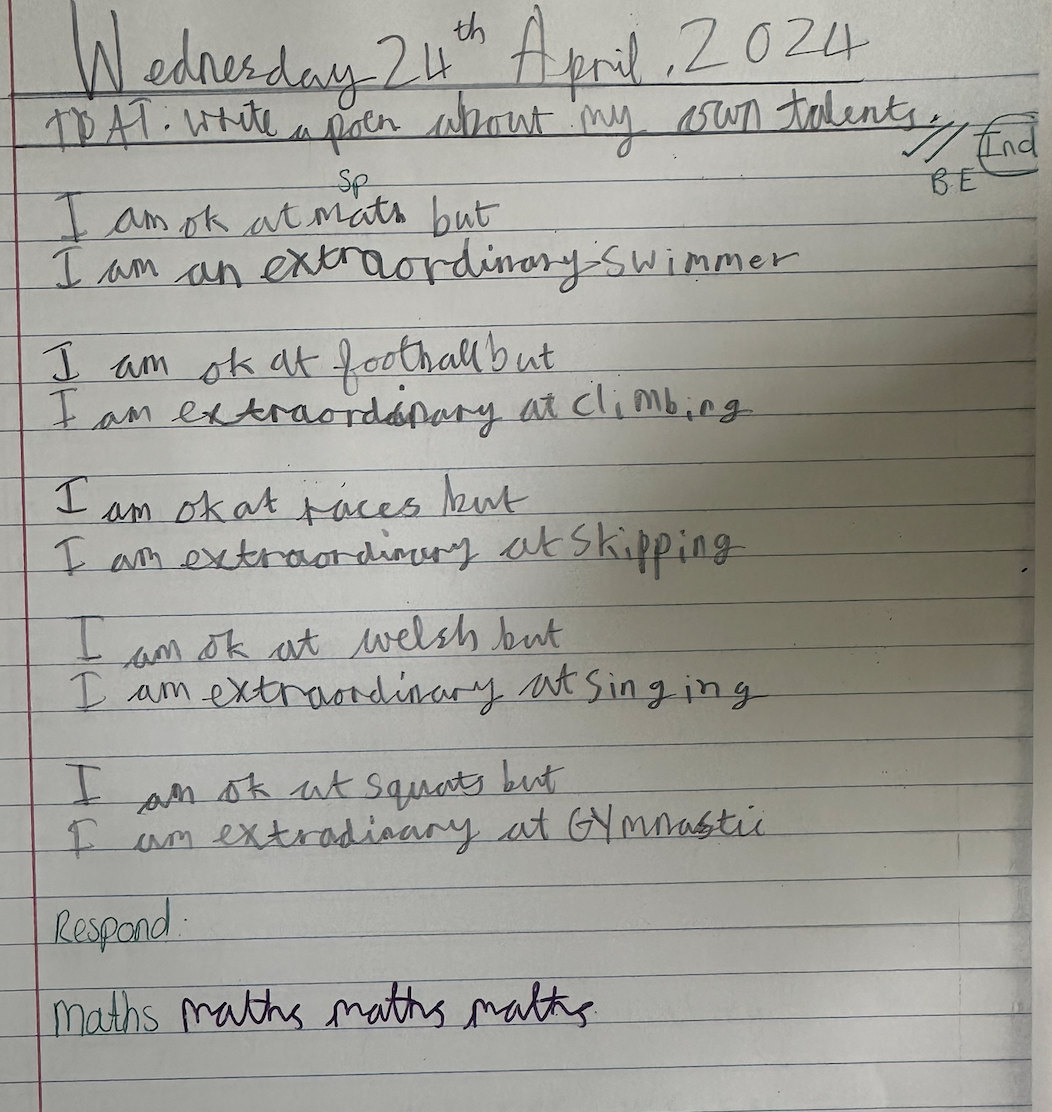 Wednesday 24th April, 2024
TBAT: write a poem about my own talents.
Ind
BE
Sp
I am ok at mats but
I am an extraordinary swimmer
I am ok at football but
I am extraordinary at climbing
I am ok at races but
I am extraordinary at skipping
I am ok at welsh but
I am extraordinary at singing
I am ok at squats but
I am extradinary at GYmnastic
Respond:
maths maths maths maths